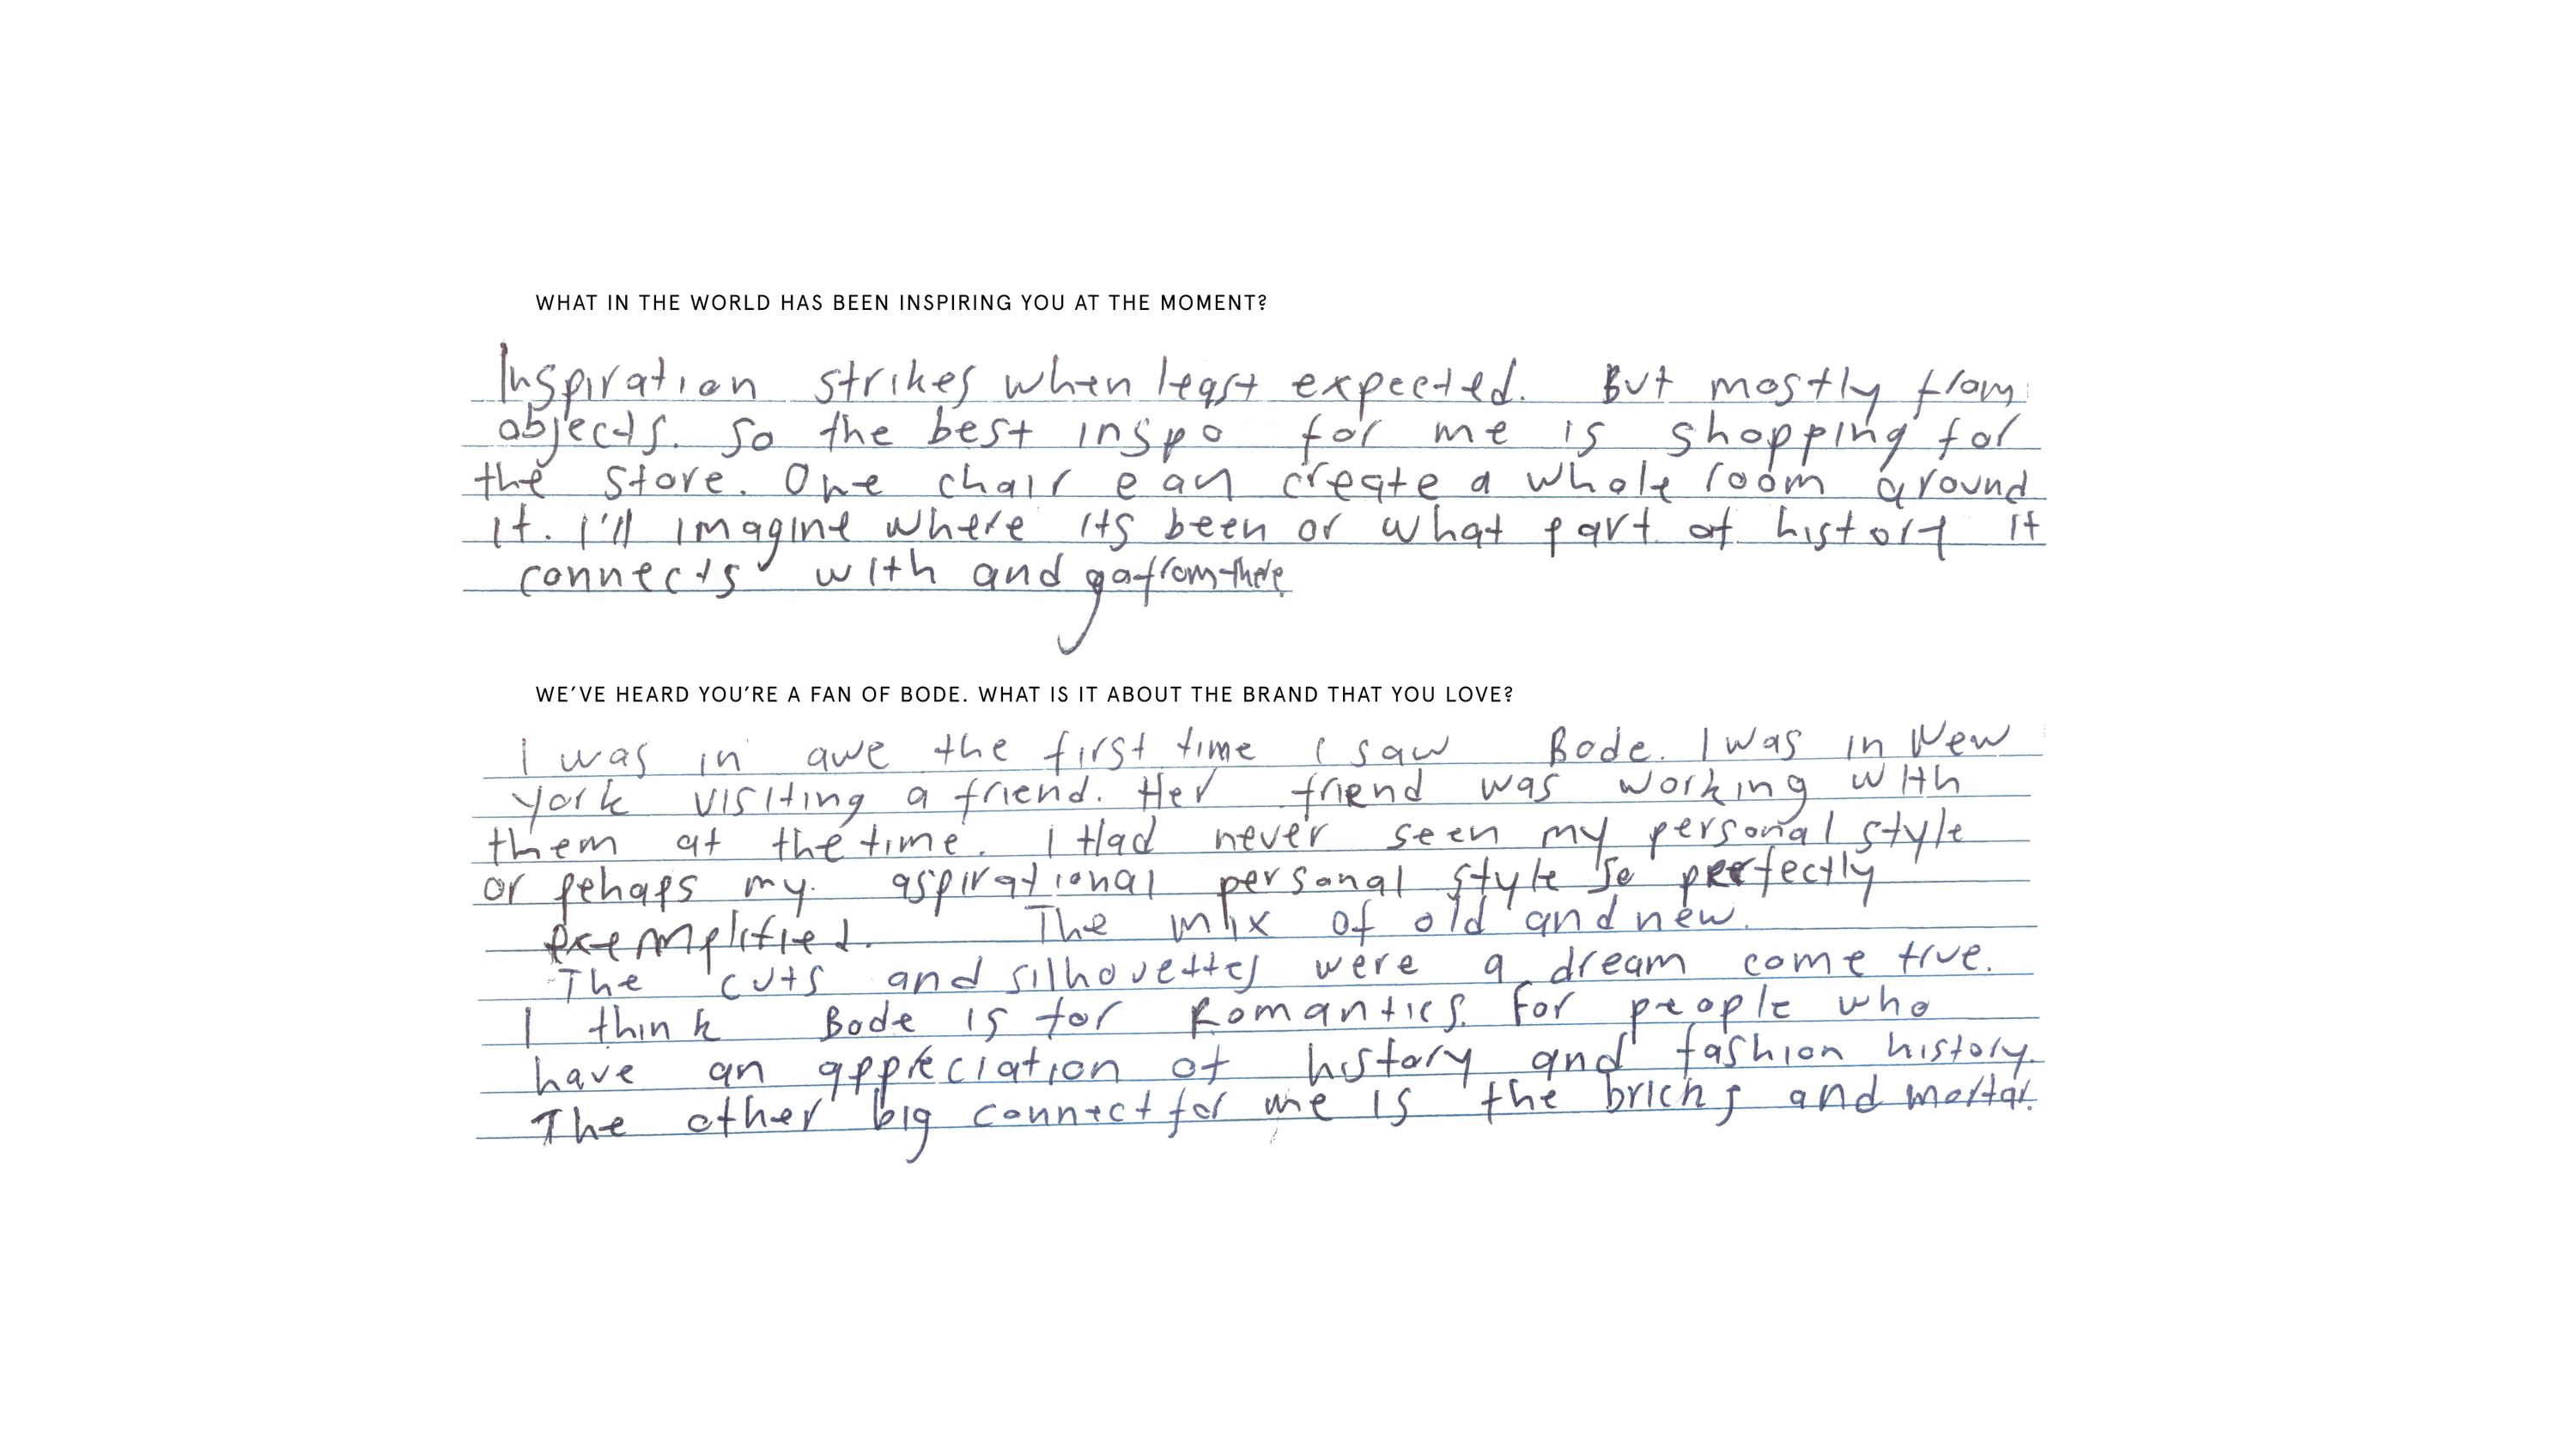 WHAT IN THE WORLD HAS BEEN INSPIRING YOU AT THE MOMENT?
Inspiration strikes when least expected. But mostly from
objects. So the best inspo for me is shopping for
the store. One chair can create a whole room around
it. I'll imagine where its been or what part of history it
connects with and go from there.
WE'VE HEARD YOU'RE A FAN OF BODE. WHAT IS IT ABOUT THE BRAND THAT YOU LOVE?
I was in awe the first time I saw Bode. I was in New
York visiting a friend. Her friend was working with
them at the time. I Had never seen my personal style
or pehaps my aspirational personal style so perfectly
exemplified. The mix of old and new.
The cuts and silhouettes were a dream come true.
I think Bode is for Romantics. For people who
have an appreciation of history and fashion history.
The other big connect for me is the bricks and mortar.